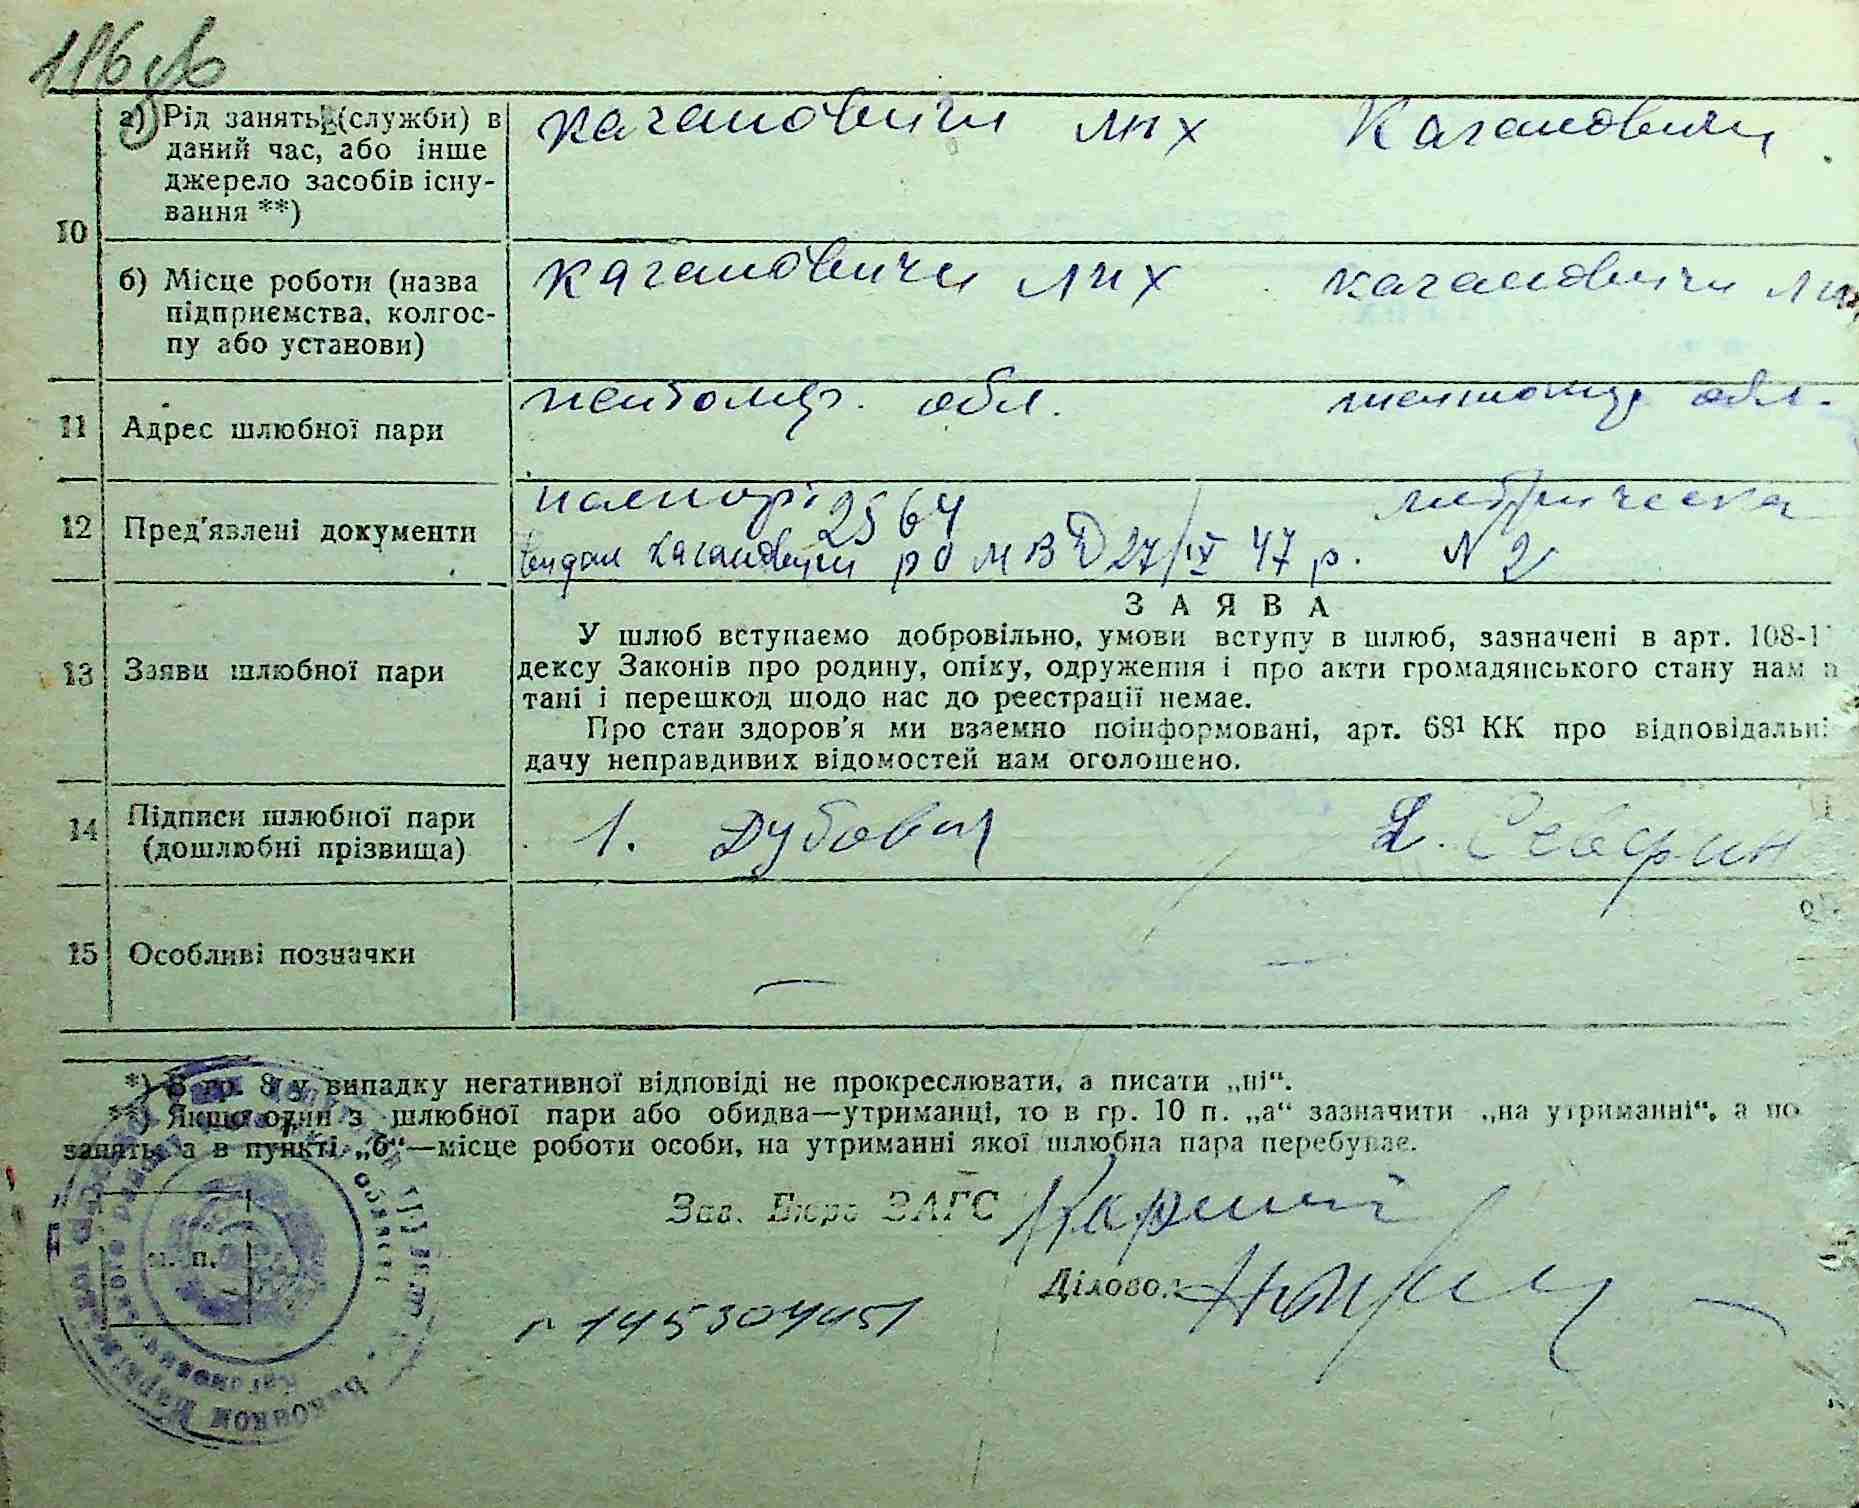 а) Рід занять (служби) в
даний час, або інше
джерело засобів існу-
вання **)
кагановичи лпх Кагановичи
10
б) Місце роботи (назва
підприємства, колгос-
пу або установи)
кагановичи лпх кагановичи лпх
11 Адрес шлюбної пари
обл. обл.
12 Пред'явлені документи
паспорт 2564
видан Кагановичи РО МВД 27/IX 47 р. N 2
ЗАЯВА
13 Заяви шлюбної пари
У шлюб вступаємо добровільно, умови вступу в шлюб, зазначені в арт. 108-1
дексу Законів про родину, опіку, одруження і про акти громадянського стану нам п
тані і перешкод щодо нас до реєстрації немає.
Про стан здоров'я ми взаємно поінформовані, арт. 68¹ КК про відповідальні
дачу неправдивих відомостей нам оголошено.
14 Підписи шлюбної пари
(дошлюбні прізвища)
1. Дубовик 2. Северин
15 Особливі позначки
—
*) В гр. 8 у випадку негативної відповіді не прокреслювати, а писати „ні“.
**) Якщо один з шлюбної пари або обидва—утриманці, то в гр. 10 п. „а“ зазначити „на утриманні“, а по
занять, а в пункті „б“—місце роботи особи, на утриманні якої шлюбна пара перебуває.
Зав. Бюро ЗАГС
м. п.
Ділово.